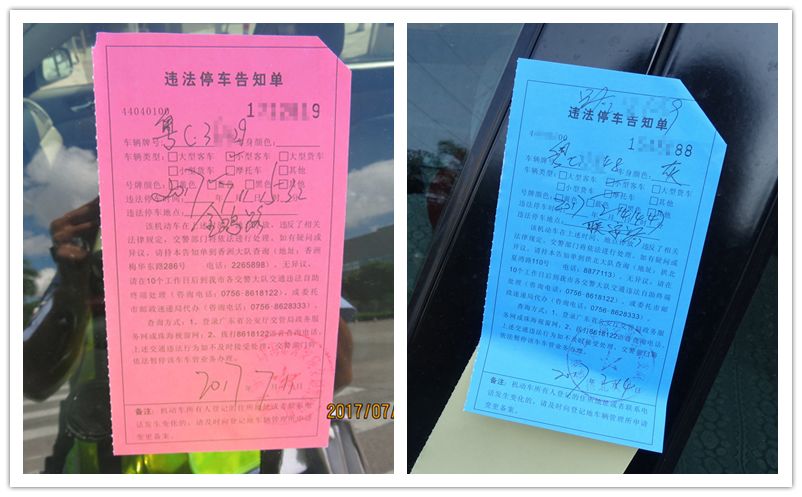 违法停车告知单
44040100
车辆牌号: 粤C3 9 车身颜色:
车辆类型: 大型客车 小型客车 大型货车
小型货车 摩托车 其他
号牌颜色: 蓝色 黄色 黑色 其他
违法停车时间:
违法停车地点:
该机动车在上述时间、地点停放,违反了相关
法律规定,交警部门将依法进行处理。如有疑问或
异议,请持本告知单到香洲大队查询(地址:香洲
梅华东路286号 电话:2265898)。无异议,
请在10个工作日后到我市各交警大队交通违法自助
终端处理(咨询电话:0756-8618122),或委托
市邮政速递局代办(咨询电话:0756-8628333)。
查询方式:1、登录广东省公安厅交管局政务服
务网或珠海视窗网;2、拨打8618122语音查询电话。
上述交通违法行为如不及时接受处理,交警部门将
依法暂停该车车管业务办理。
2017 年 7 月 日
备注:机动车所有人登记的住所地址或者联系电
话发生变化的,请及时向登记地车辆管理所申请
变更备案。
2017/07/
违法停车告知单
88
车辆牌号: 粤C 48 车身颜色: 灰
车辆类型: 大型客车 小型客车 大型货车
小型货车 摩托车 其他
号牌颜色: 蓝色 其他
违法停车时间: 2017
违法停车地点:
该机动车在上述时间、地点停放,违反了相关
法律规定,交警部门将依法进行处理。如有疑问或
异议,请持本告知单到拱北大队查询(地址:拱北
夏湾路110号 电话:8877113)。无异议,请在
10个工作日后到我市各交警大队交通违法自助终端
处理(咨询电话:0756-8618122),或委托市邮
政速递局代办(咨询电话:0756-8628333)。
查询方式:1、登录广东省公安厅交管局政务服
务网或珠海视窗网;2、拨打8618122语音查询电话。
上述交通违法行为如不及时接受处理,交警部门将
依法暂停该车车管业务办理。
2017 年
备注:机动车所有人登记的住所地址或者联系电
话发生变化的,请及时向登记地车辆管理所申请
变更备案。